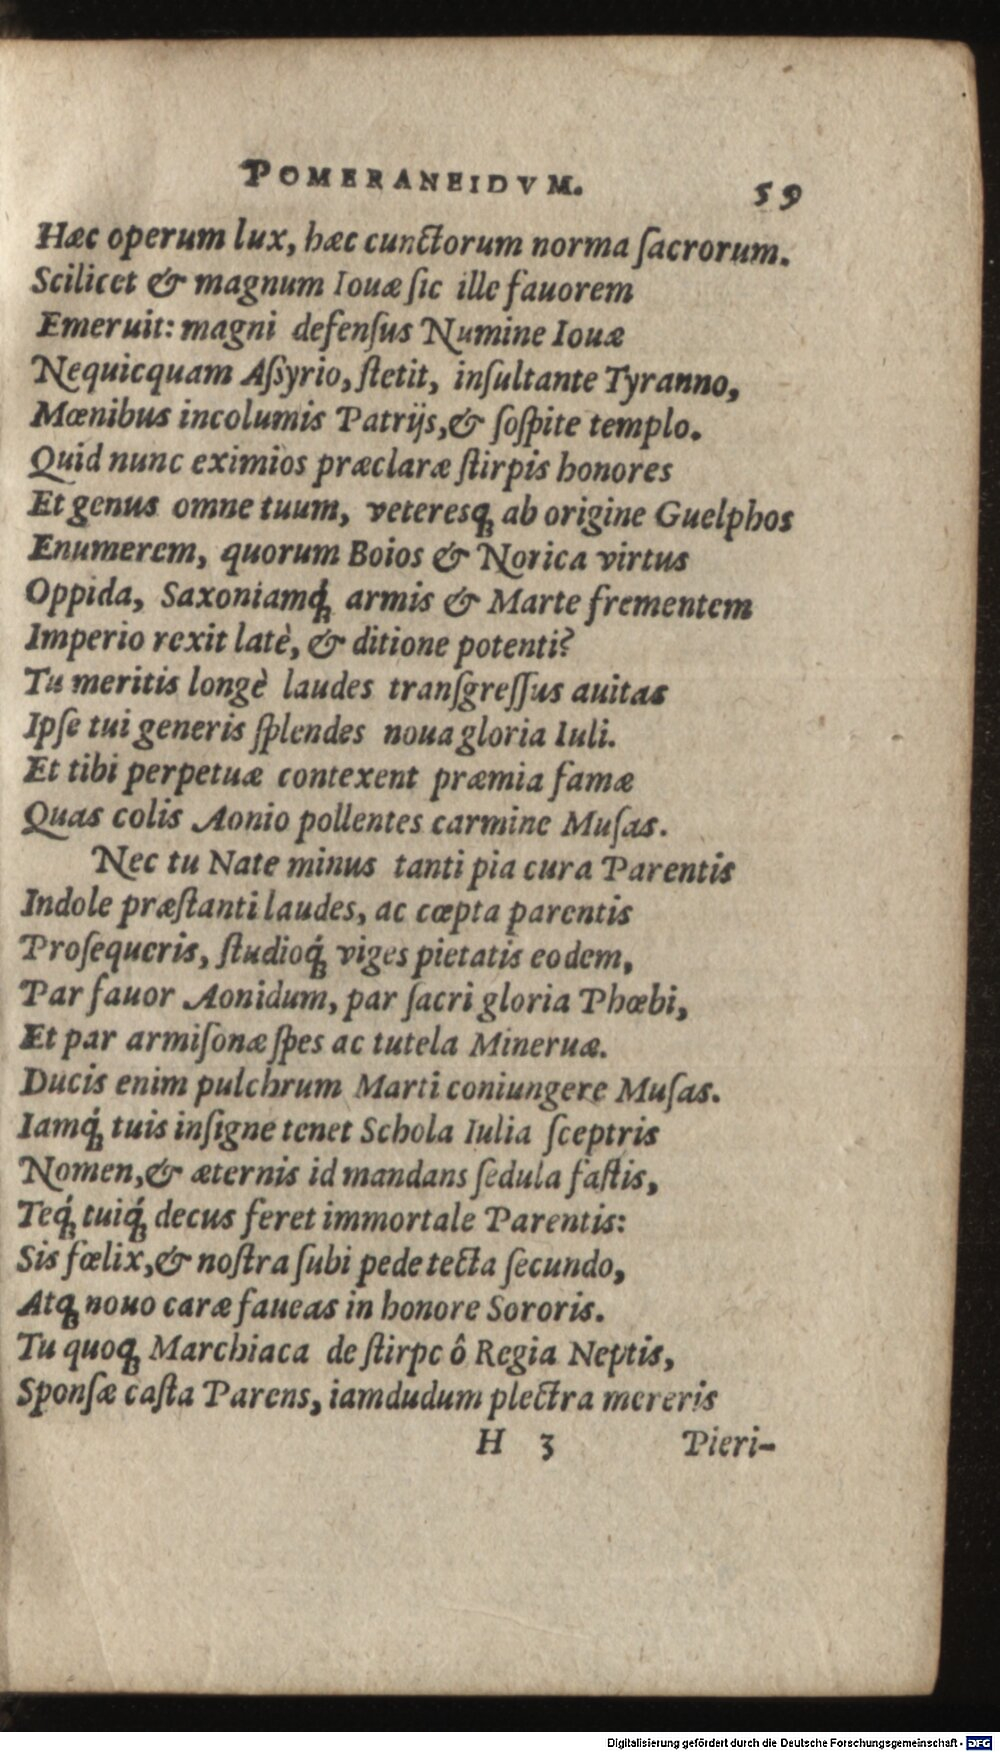 POMERANEIDVM. 59
Hæc operum lux, hæc cunctorum norma ſacrorum.
Scilicet & magnum Iouæ ſic ille fauorem
Emeruit: magni defenſus Numine Iouæ
Nequicquam Aſſyrio, ſtetit, inſultante Tyranno,
Mœnibus incolumis Patrijs, & ſoſpite templo.
Quid nunc eximios præclaræ ſtirpis honores
Et genus omne tuum, veteresq́; ab origine Guelphos
Enumerem, quorum Boios & Norica virtus
Oppida, Saxoniamq́; armis & Marte frementem
Imperio rexit latè, & ditione potenti?
Tu meritis longè laudes transgreſſus auitas
Ipſe tui generis ſplendes noua gloria Iuli.
Et tibi perpetuæ contexent præmia famæ
Quas colis Aonio pollentes carmine Muſas.
Nec tu Nate minus tanti pia cura Parentis
Indole præſtanti laudes, ac cœpta parentis
Proſequeris, ſtudioq́; viges pietatis eodem,
Par fauor Aonidum, par ſacri gloria Phœbi,
Et par armiſonæ ſpes ac tutela Mineruæ.
Ducis enim pulchrum Marti coniungere Muſas.
Iamq́; tuis inſigne tenet Schola Iulia ſceptris
Nomen, & æternis id mandans ſedula faſtis,
Teq́; tuiq́; decus feret immortale Parentis:
Sis fœlix, & noſtra ſubi pede tecta ſecundo,
Atq; nouo caræ faueas in honore Sororis.
Tu quoq; Marchiaca de ſtirpe ô Regia Neptis,
Sponſæ caſta Parens, iamdudum plectra mereris
H 3 Pieri-
Digitalisierung gefördert durch die Deutsche Forschungsgemeinschaft - DFG